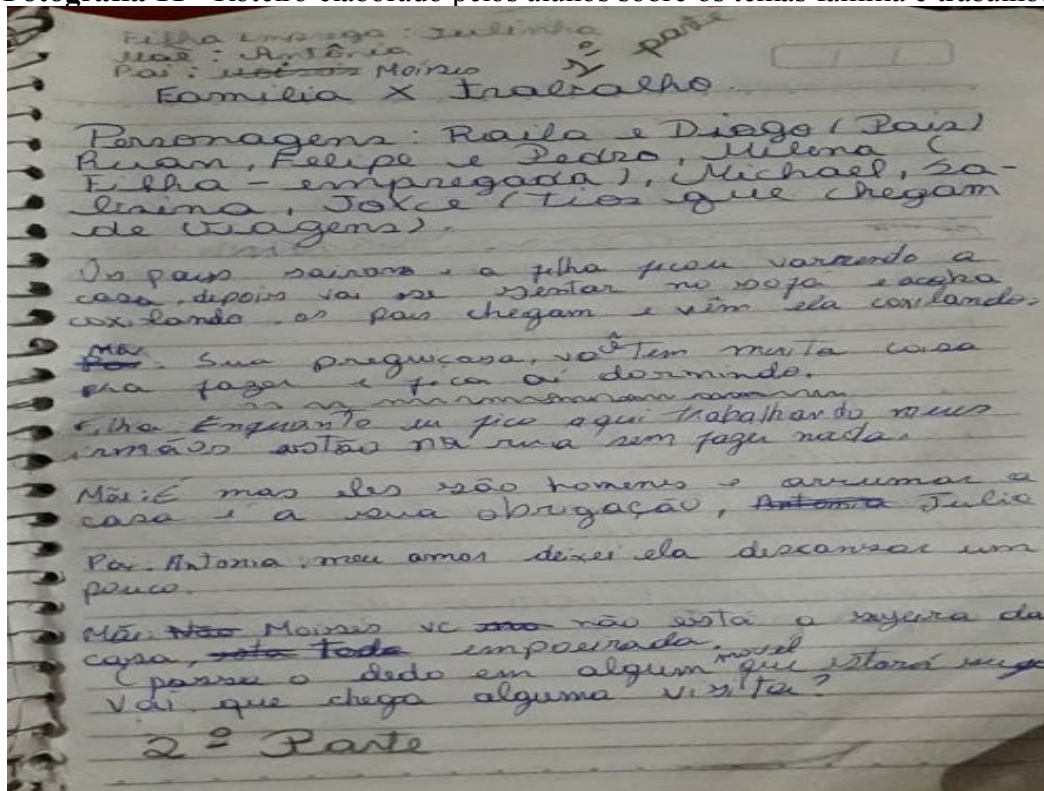 Fotografia 11 - Roteiro elaborado pelos alunos sobre os temas família e trabalho.
Filha emprega : Julinha
Mãe : Antônia
1ª parte
Pai : Moises
Família X Trabalho.
Personagens: Raila e Diogo (Pais)
Ruan, Felipe e Pedro, Milena (
Filha - empregada), Michael, Sa-
brina, Joyce (tios que chegam
de viagens).
Os pais sairam e a filha ficou varrendo a
casa, depois vai se sentar no sofá e acaba
coxilando os pais chegam e vêm ela coxilando.
Mãe: Sua preguiçosa, você tem muita coisa
pra fazer e fica aí dormindo.
Filha Enquanto eu fico aqui trabalhando meus
irmãos estão na rua sem fazer nada.
Mãe: É mas eles são homens e arrumar a
casa é a sua obrigação, Antonia Julia
Pai. Antonia meu amor deixei ela descansar um
pouco.
Mãe: Não Moises vc não está a sujeira da
casa, toda empoeirada.
(passa o dedo em algum móvel que estará sujo
Vai que chega alguma visita?
2º Parte